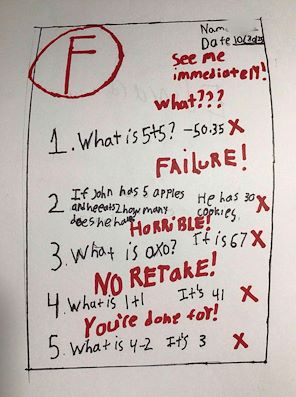 F
Nam
Date 10/20/25
See me
immediately!
What???
1. What is 5+5? -50.35 X
FAILURE!
2 If John has 5 apples He has 30
and he eats 2 how many cookies. X
does he have
HORRIBLE!
3. What is 0x0? It is 67 X
NO RETAKE!
4. What is 1+1 It's 41 X
You're done for!
5. What is 4-2 It's 3 X